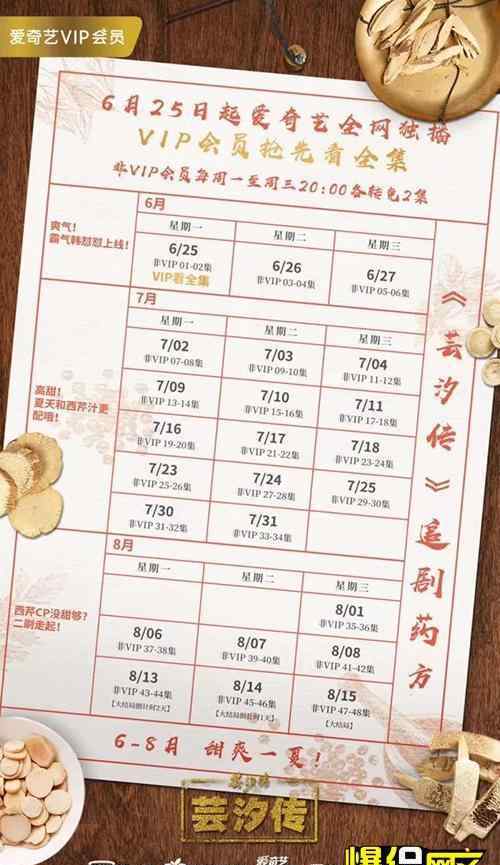 爱奇艺VIP会员
6月25日起爱奇艺全网独播
VIP会员抢先看全集
非VIP会员每周一至周三20:00各转免2集
6月
爽气！
霸气韩怼怼上线！
星期一
星期二
星期三
6/25
非VIP 01-02集
VIP看全集
6/26
非VIP 03-04集
6/27
非VIP 05-06集
7月
高甜！
夏天和西芹汁更
配哦！
星期一
星期二
星期三
7/02
非VIP 07-08集
7/03
非VIP 09-10集
7/04
非VIP 11-12集
7/09
非VIP 13-14集
7/10
非VIP 15-16集
7/11
非VIP 17-18集
7/16
非VIP 19-20集
7/17
非VIP 21-22集
7/18
非VIP 23-24集
7/23
非VIP 25-26集
7/24
非VIP 27-28集
7/25
非VIP 29-30集
7/30
非VIP 31-32集
7/31
非VIP 33-34集
8月
西芹CP没甜够？
二刷走起！
星期一
星期二
星期三
8/01
非VIP 35-36集
8/06
非VIP 37-38集
8/07
非VIP 39-40集
8/08
非VIP 41-42集
8/13
非VIP 43-44集
【大结局倒计时2天】
8/14
非VIP 45-46集
【大结局倒计时1天】
8/15
非VIP 47-48集
【大结局】
《芸汐传》追剧药方
6-8月 甜爽一夏！
芸汐传
芸汐传
爱奇艺